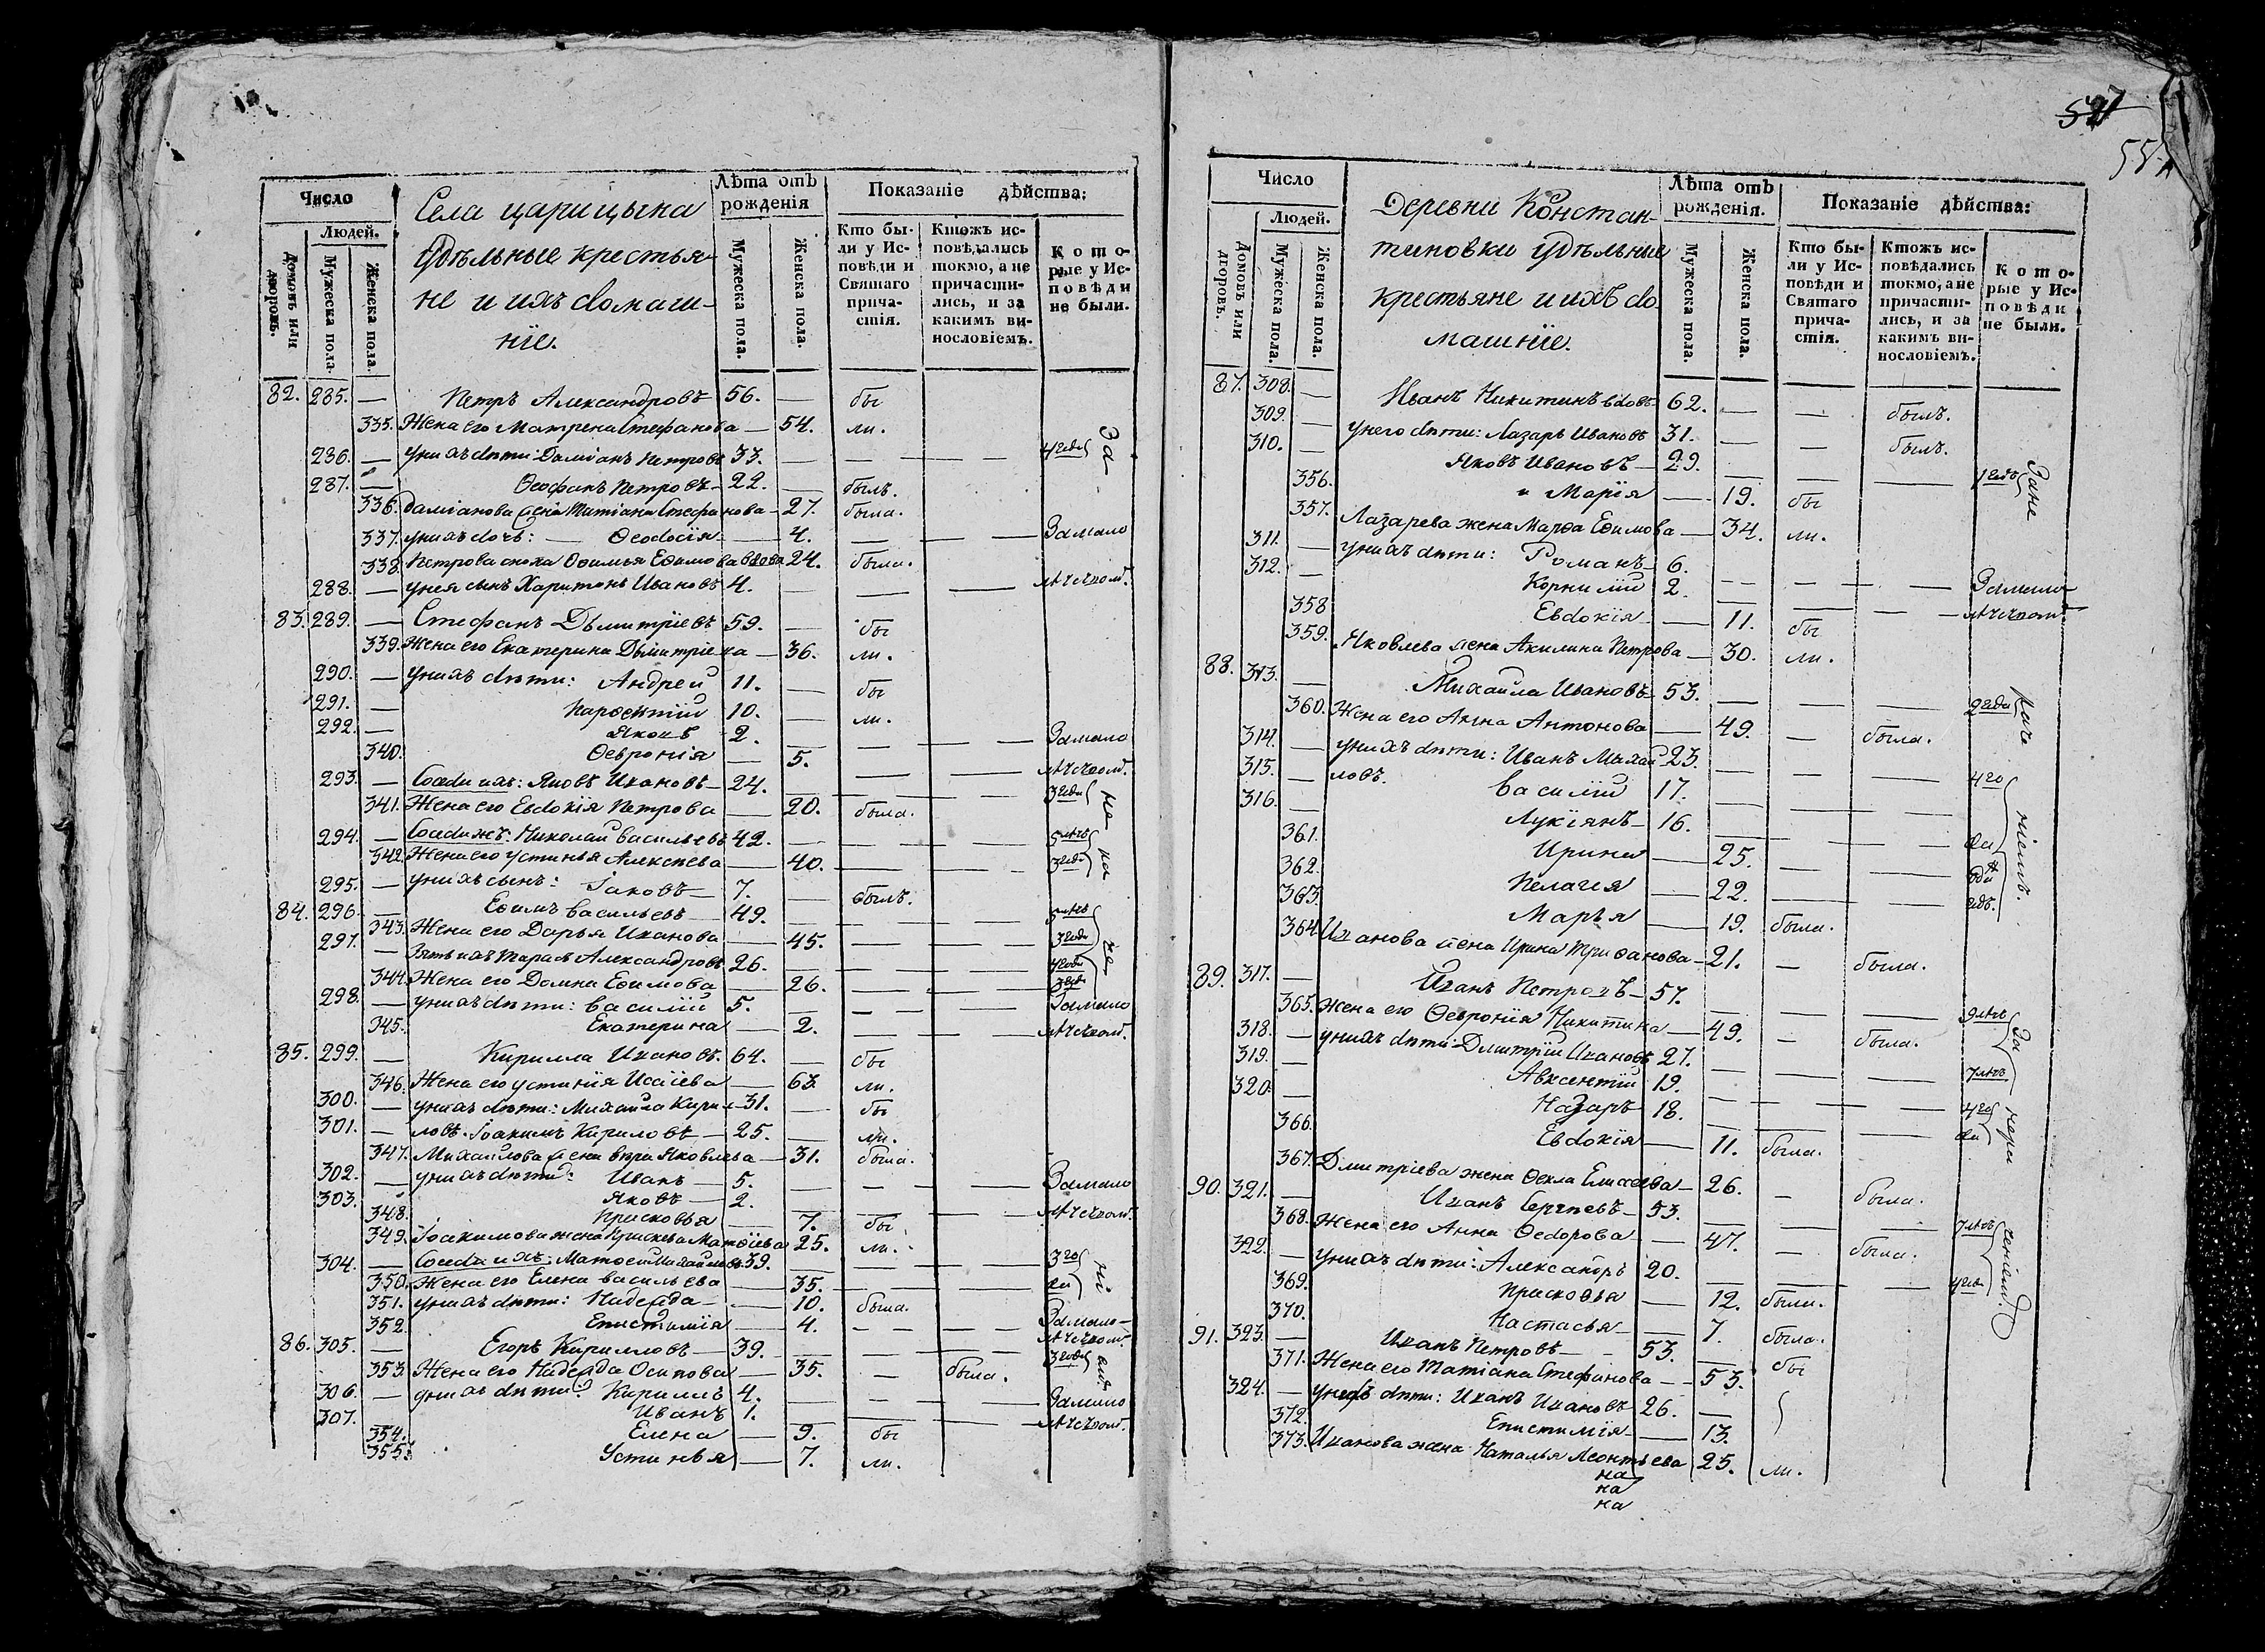 527
55
Число
Села царицына
удѣльные крестья-
не и ихъ домаш-
ніе.
Лѣта отъ рожденія
Показаніе дѣйства:
Людей.
Домовъ или дворовъ.
Мужеска пола.
Женска пола.
Мужеска пола.
Женска пола.
Кто бы-
ли у Ис-
повѣди и
Святаго
прича-
стія.
Ктожъ ис-
повѣдались
токмо, а не
причасти-
лись, и за
какимъ ви-
нословіемъ.
Кото-
рые у Ис-
повѣди
не были.
82. 285. — Петръ Александровъ 56. — бы
335. Жена его Матрена Стефанова — 54. ли.
286. — у нихъ дѣти: Даміанъ Петровъ 33. — — — 4 года За
287. — Ѳеофанъ Петровъ — 22. — былъ.
336. Даміанова жена Татіана Стефанова — 27. была.
337. у нихъ дочь: — Ѳеодосія — 4. — — Замало
338. Петрова сноха Ефимья Ефимова вдова 24. была.
288. — у нея сынъ Харитонъ Ивановъ 4. — — — лѣтством.
83. 289. — Стефанъ Дмитріевъ 59. — бы
339. Жена его Екатерина Дмитріева — 36. ли.
290. — у нихъ дѣти: Андрей 11. — бы
291. — Парѳентій 10. — ли.
292. — Яковъ 2. — — — Замало
340. Ѳевронія — 5. — — лѣтством.
293. — Соѣди ихъ: Яковъ Ивановъ — 24. — — — 3 года не
341. Жена его Евдокія Петрова — 20. была.
294. — Соѣди ихъ: Николай Васильевъ 42. — — — 5 лѣтъ на
342. Жена его Устинья Алексѣева — 40. — — 3 года
295. — у нихъ сынъ: Іаковъ — 7. — былъ.
84. 296. — Ефимъ Васильевъ — 49. — — — 5 лѣтъ
343. Жена его Дарья Иванова — 45. — — 3 года
297. — Зять ихъ Тарасъ Александровъ 26. — — — 4 года
344. Жена его Домна Ефимова — 26. — — 3 года
298. — у нихъ дѣти: Василій 5. — — — Замало
345. Екатерина — 2. — — лѣтством.
85. 299. — Кирилла Ивановъ. 64. — бы
346. Жена его Устинія Исаіева — 63. ли.
300. — у нихъ дѣти: Михайла Кири- 31. — бы
301. — ловъ. Іоакимъ Кириловъ — 25. — ли.
347. Михайлова жена Вѣра Яковлева — 31. была.
302. — у нихъ дѣти: Иванъ — 5. — — — Замало
303. Яковъ — 2. — — — лѣтством.
348. Прасковья — 7. бы
349. Іоакимова жена Прасковья Матѳіева 25. ли.
304. — Соѣди ихъ: Матѳей Михайловъ 39. — — — 3 го ні
350. Жена его Елена Васильева — 35. — — да
351. у нихъ дѣти: Надежда — 10. была.
352. Епистимія — 4. — — Замало-
86. 305. — Егоръ Кирилловъ — 39. — — — лѣтством. 3 года
353. Жена его Надежда Осипова — 35. — была.
306. — у нихъ дѣти: Кириллъ 4. — — — Замало
307. Иванъ 1. — — — лѣтством.
354. Елена — 9. бы
355. Устинья — 7. ли.
Число
Деревни Констан-
тиновки удѣльные
крестьяне и ихъ до-
машніе.
Лѣта отъ рожденія.
Показаніе дѣйства:
Людей.
Домовъ или дворовъ.
Мужеска пола.
Женска пола.
Мужеска пола.
Женска пола.
Кто бы-
ли у Ис-
повѣди и
Святаго
прича-
стія.
Ктожъ ис-
повѣдались
токмо, а не
причасти-
лись, и за
какимъ ви-
нословіемъ.
Кото-
рые у Ис-
повѣди
не были.
87. 308. — Иванъ Никитинъ вдовъ 62. — — былъ.
309. — У него дѣти: Лазарь Ивановъ 31. — — былъ.
310. — Яковъ Ивановъ — 29. — — — 1 годъ Зане
356. и Марія — 19. бы
357. Лазарева жена Марѳа Ефимова — 34. ли.
311. — у нихъ дѣти: Романъ — 6. — — — Замало
312. — Корнилій 2. — — — лѣтством.
358 Евдокія — 11. бы
359. Яковлева жена Акилина Петрова — 30. ли.
88. 313. — Михайла Ивановъ — 53. — — — 2 года раче
360. Жена его Анна Антонова — 49. — была.
314. — у нихъ дѣти: Иванъ Михай 23. — — — 4 го
315. — ловъ. Василій 17. — — —
316. — Лукіянъ — 16. — — — да
361. Ирина — 25. — —
362. Пелагея — 22. — — годъ. ніемъ.
363. Марья — 19. была.
364. Иванова жена Ирина Трифанова — 21. — была.
89. 317. — Иванъ Петровъ — 57. — — — 9 лѣтъ За
365. Жена его Ѳевронія Никитина — 49. — была.
318. — у нихъ дѣти: Дмитрій Ивановъ 27. — — — 7 лѣтъ
319. — Авксентій 19. — — — 4 го
320. — Назаръ — 18. — — — да нера
366. Евдокія — 11. была.
367. Дмитріева жена Ѳекла Елисеева — 26. — была.
90. 321. — Иванъ Сергѣевъ — 53. — — — 7 лѣтъ
368. Жена его Анна Ѳедорова — 47. — была.
322. — у нихъ дѣти: Александръ 20. — — — 4 года ченіемъ.
369. Прасковья — 12. была.
370. Настасья — 7. была.
91. 323. — Иванъ Петровъ — 53. — бы
371. Жена его Татіана Стефанова — 53.
324. — У нихъ дѣти: Иванъ Ивановъ 26. —
372. Епистимія — 13.
373. Иванова жена Наталья Леонтьева 25. ли.
на
на
на